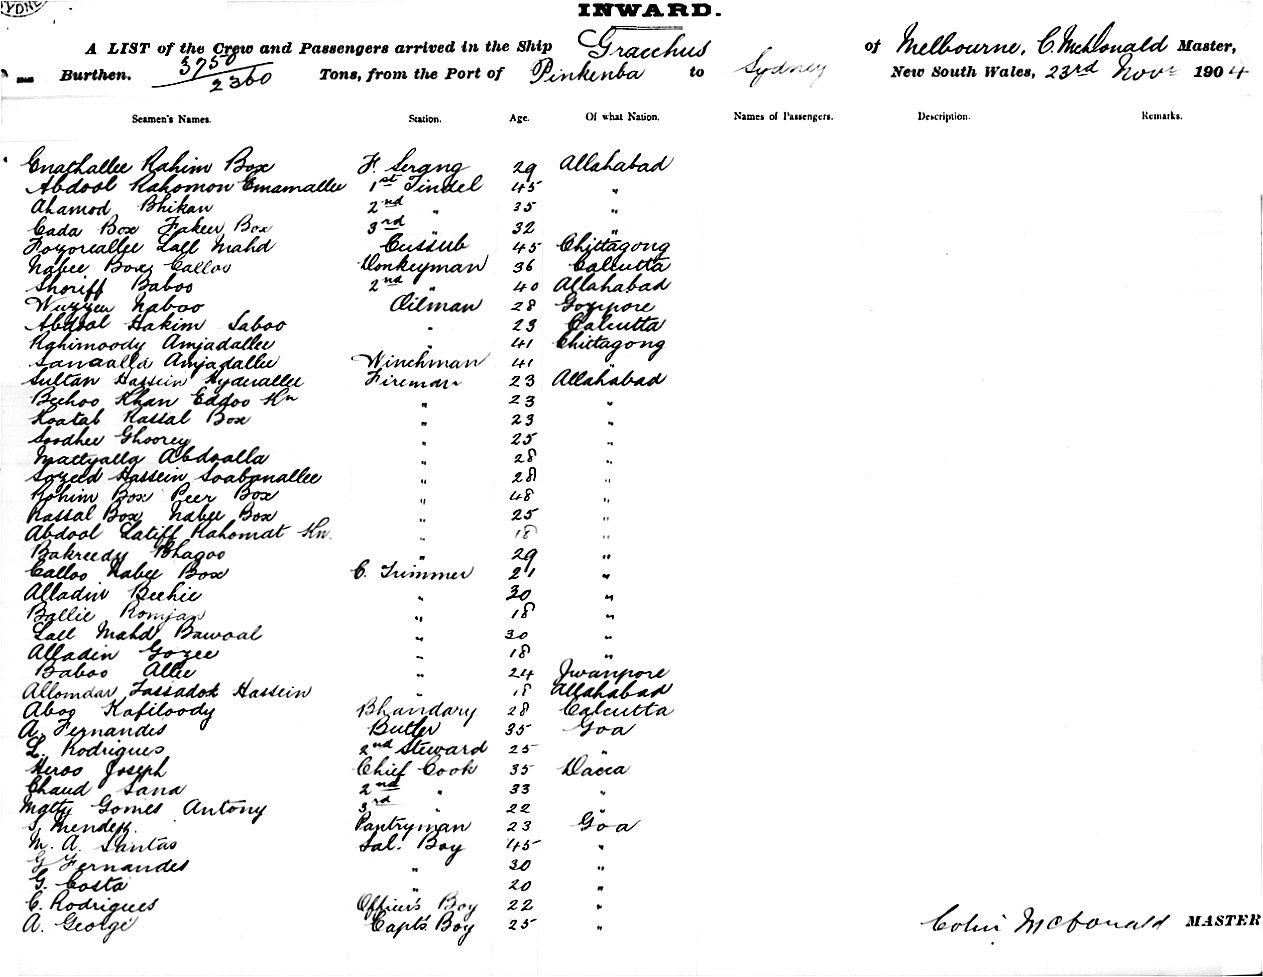 SYDNE
INWARD.
A LIST of the Crew and Passengers arrived in the Ship Gracchus of Melbourne, C. McDonald Master,
Burthen. 3750 / 2360 Tons, from the Port of Pinkenba to Sydney New South Wales, 23rd Novr 1904
Seamen's Names. Station. Age. Of what Nation. Names of Passengers. Description. Remarks.
Enathallee Rahim Box F. Serang 29 Allahabad
Abdool Rahomon Emamallee 1st Tindel 45 "
Ahamod Bhikan 2nd " 35 "
Cada Box Fakeer Box 3rd " 32 "
Foyoreallee Lall Mahd Cussub 45 Chittagong
Nabee Box Calloo Donkeyman 36 Calcutta
Shoriff Baboo 2nd " 40 Allahabad
Wuzzeer Naboo Oilman 28 Gozipore
Abdool Hakim Saboo " 23 Calcutta
Rahimoody Amjadallee " 41 Chittagong
Sanaalla Amjadallee Winchman 41 "
Sultan Hassein Hyderallee Fireman 23 Allahabad
Beehoo Khan Eddoo Kn " 23 "
Koatab Rassal Box " 23 "
Soodhee Ghoorey " 25 "
Mattyalla Abdoalla " 28 "
Sayeed Hassein Soabanallee " 28 "
Rohim Box Peer Box " 48 "
Rassal Box Nabee Box " 25 "
Abdool Latiff Rahomat Kn. " 18 "
Bakreedy Bhagoo " 29 "
Calloo Nabee Box C. Trimmer 21 "
Alladin Beehie " 30 "
Ballie Romjan " 18 "
Lall Mahd Bawoal " 30 "
Alladin Gozee " 18 "
Baboo Allie " 24 Jwanpore
Allomdar Tassadok Hassein " 18 Allahabad
Aboo Kafiloody Bhandary 28 Calcutta
A. Fernandes Butler 35 Goa
L. Rodrigues 2nd Steward 25 "
Heroo Joseph Chief Cook 35 Dacca
Chaud Sana 2nd " 33 "
Matty Gomes Antony 3rd " 22 "
S. Mendez. Pantryman 23 Goa
M. A. Santas Sal. Boy 45 "
G Fernandes " 30 "
G. Costa " 20 "
C. Rodrigues Officer's Boy 22 "
A. George Capt's Boy 25 "
Colin McDonald MASTER